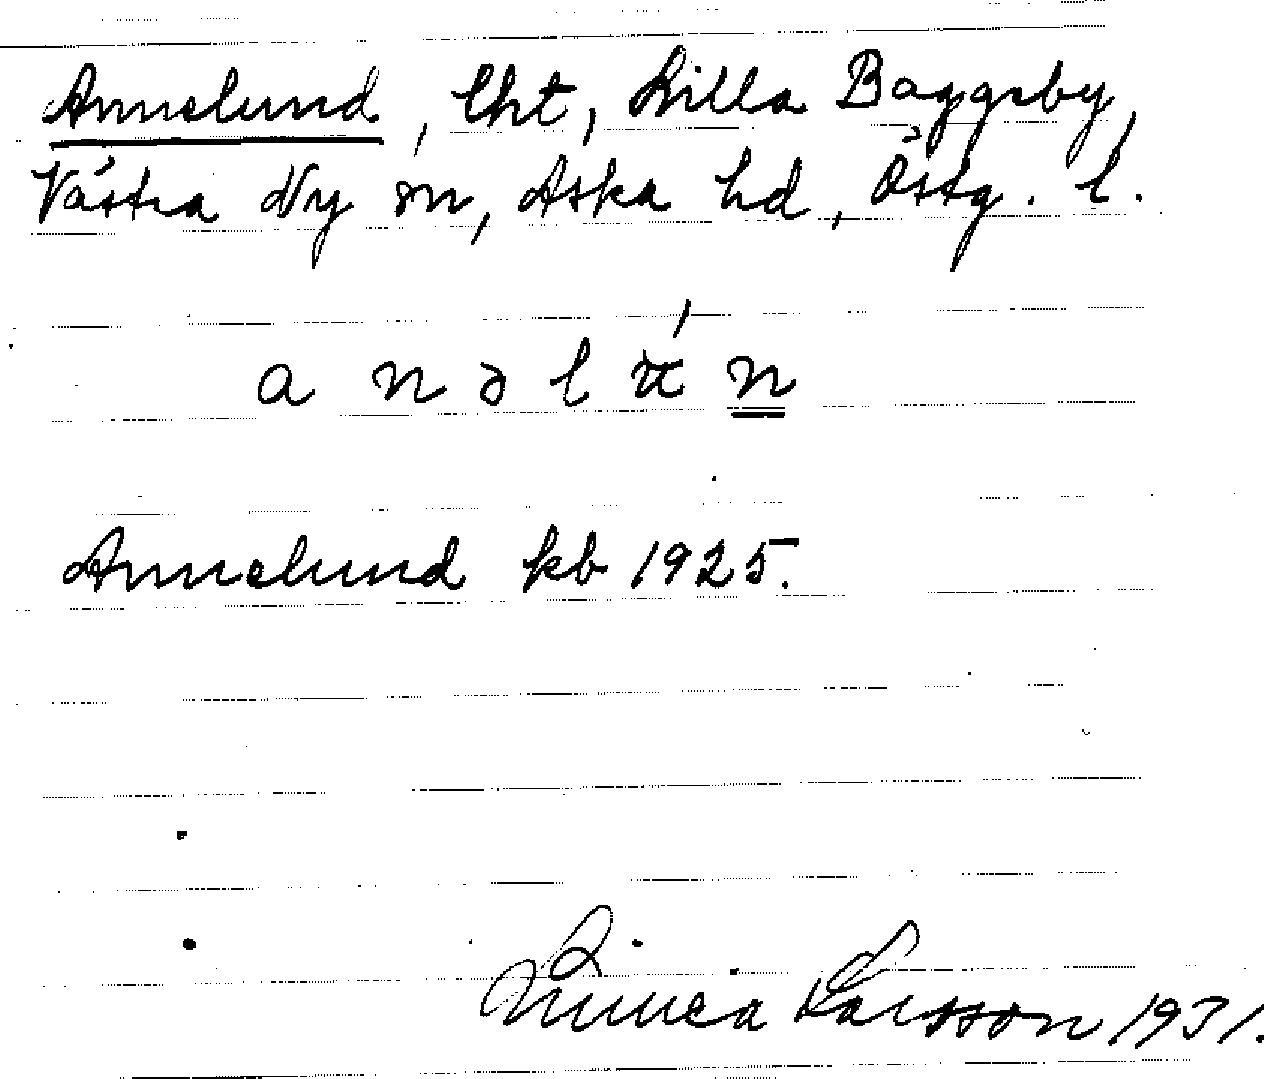 Annelund, lht, Lilla Baggeby,
Västra Ny sn, Aska hd, Östg. l.
a n ə l ú n
Annelund kb 1925.
Linnea Larsson 1931.